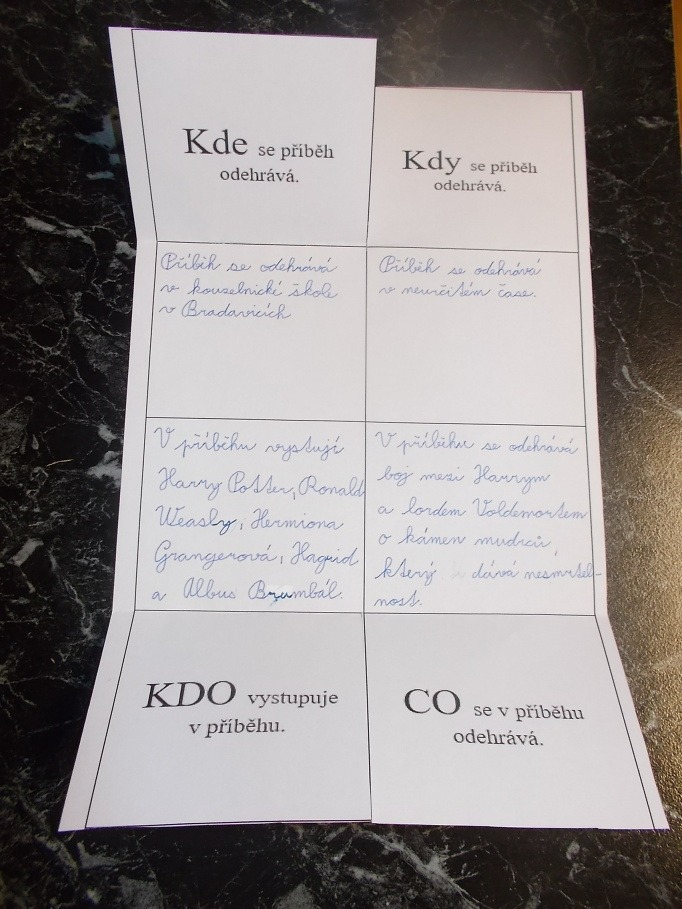 Kde se příběh
odehrává.
Kdy se příběh
odehrává.
Příběh se odehrává
v kouzelnické škole
v Bradavicích
Příběh se odehrává
v neurčitém čase.
V příběhu vystují
Harry Potter, Ronald
Weasly, Hermiona
Grangerová, Hagrid
a Albus Brumbál.
V příběhu se odehrává
boj mezi Harrym
a lordem Voldemortem
o kámen mudrců,
který dává nesmrtel-
nost.
KDO vystupuje
v příběhu.
CO se v příběhu
odehrává.